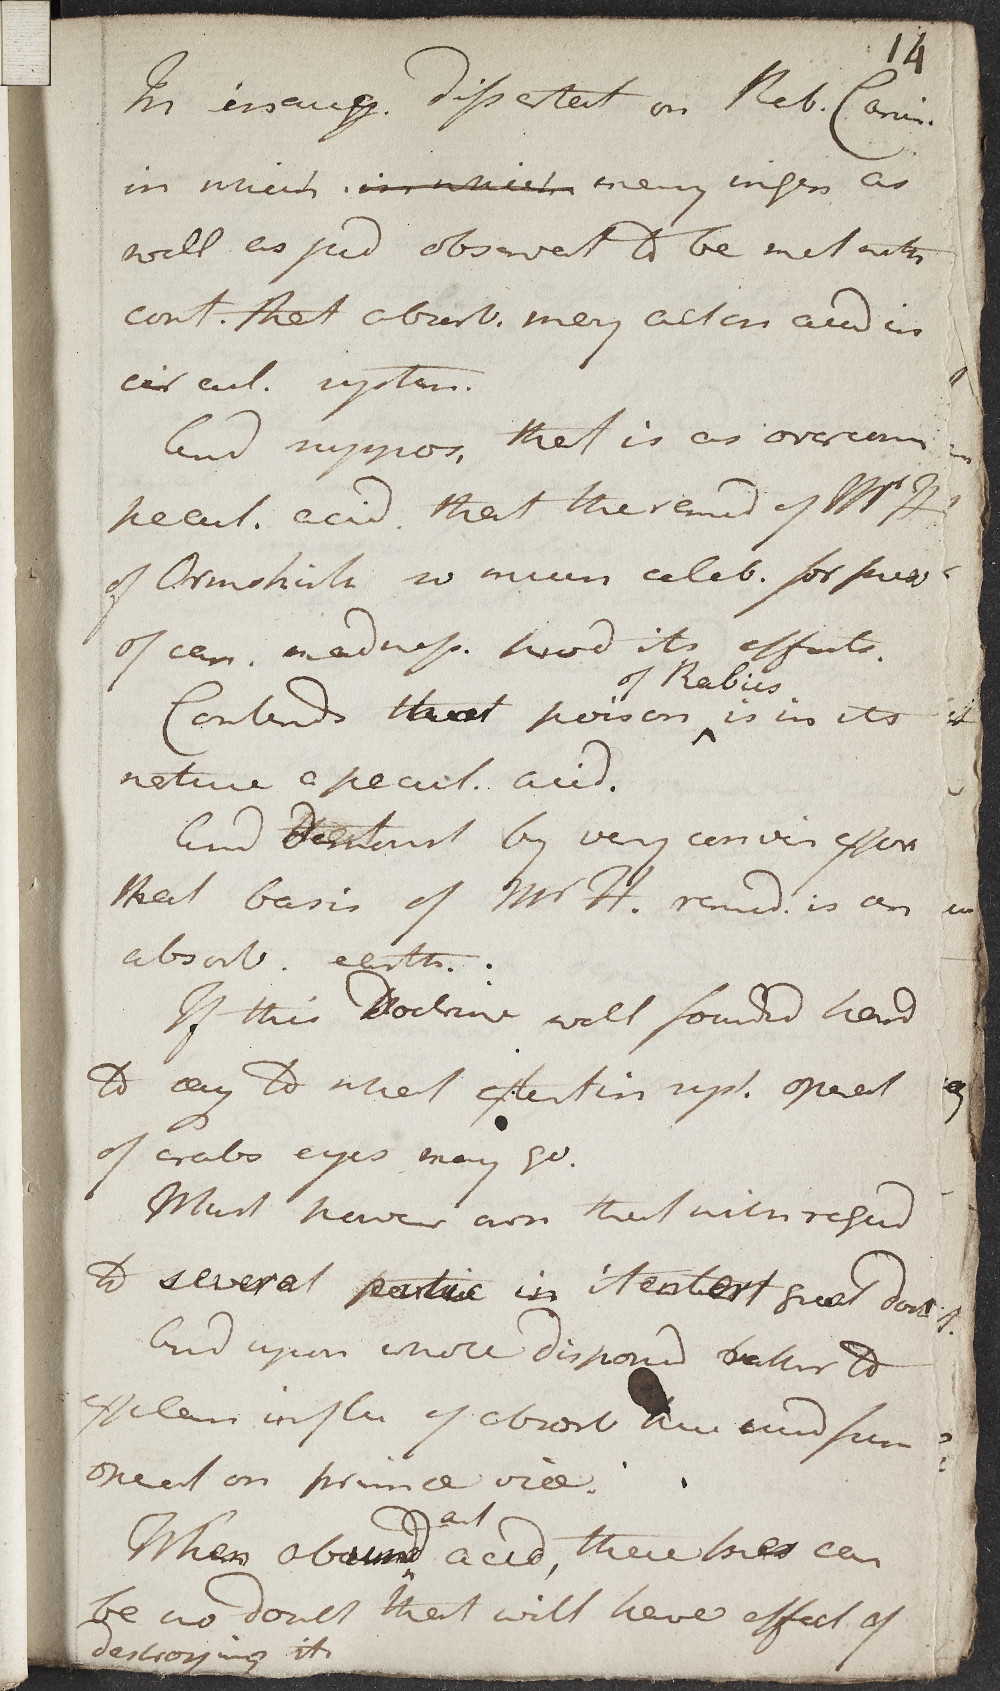 14
In inaug. dissertat on Rab. Canin.
in which in which many ingen as
well as jud observat to be met with
cont. that absorb. may act on acid in
circul. system.
And suppos. that is as overcom
pecul. acid. that the remed of Mr H
of Ormskirk so much celeb. for prev
of can. madness. prod its effects.
of Rabies
Contends that poison is in its
nature a pecul. acid.
And Demonst by very convin exper
that basis of Mr H. remed. is an
absorb. earth.
If this Doctrine well founded hard
to say to what extent in syst. operat
of crabs eyes may go.
Must however own that with regard
to several partic in it entert great doubt.
And upon whole disposed rather to
explain influ of absorb has and from
operat on primæ viæ.
act
When abound acid, there can
be no doubt that will have effect of
destroying it